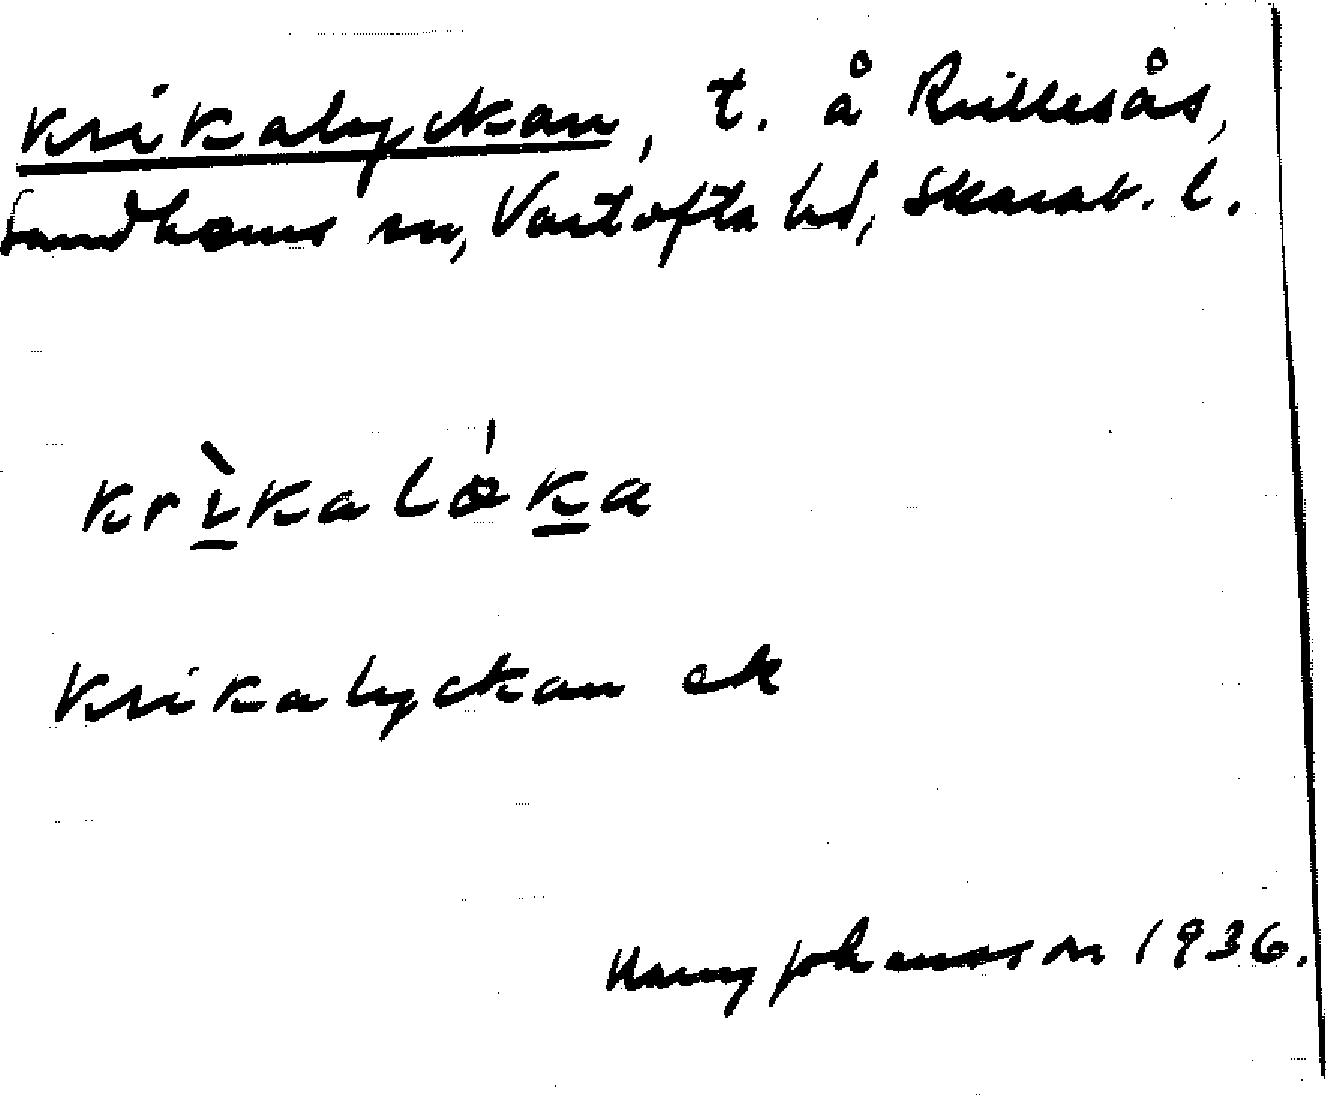 Krikalyckan, t. å Rillesås,
Sandhems sn, Vartofta hd, Skarab. l.
krìkalǿka
Krikalyckan ek
Harry Johansson 1936.